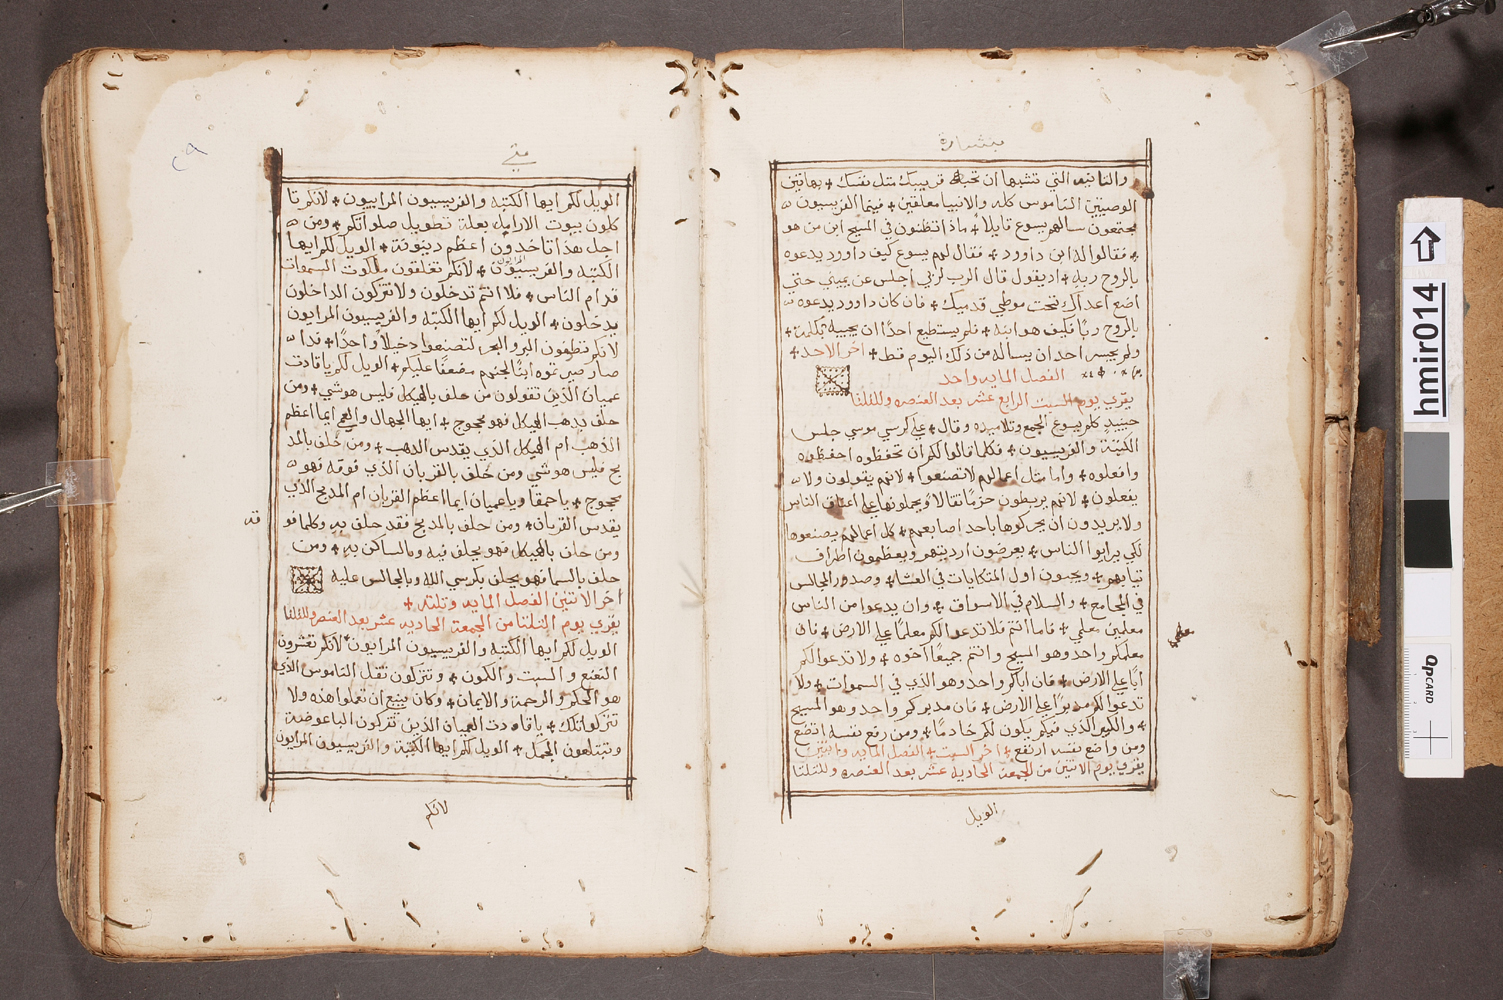 بشارة
والثانيه التي تشبهها ان تحب قريبك مثل نفسك + بهاتين
الوصيتين الناموس كله والانبيا معلقين + فيما الفريسيون
مجتمعون سالهم يسوع قايلاً + ماذا تظنون في المسيح ابن من هو
+ فقالوا له ابن داوود + فقال لهم يسوع كيف داوود يدعوه
بالروح ربه + اذ يقول قال الرب لربي اجلس عن يميني حتي
اضع اعداك تحت موطي قدميك + فان كان داوود يدعوه
بالروح ربًا فكيف هو ابنه + فلم يستطيع احدًا ان يجيبه بكلمة +
ولم يجسر احد ان يساله من ذلك اليوم قط + اخر الاحد +
الفصل المايه واحد
يقري يوم السبت الرابع عشر بعد العنصره وللثلثا
حينيد كلم يسوع الجمع وتلاميده وقال + علي كرسي موسي جلس
الكتبة والفريسيون + فكلما قالوا لكم ان تحفظوه احفظوه
وافعلوه + واما مثل اعمالهم لا تصنعوا + لانهم يقولون ولا
يفعلون + لانهم يربطون حزمًا ثقالاً ويحملونها علي اعناق الناس
ولا يريدون ان يحركوها باحد اصابعهم + كل اعمالهم يصنعوها
لكي يرايوا الناس + يعرضون ارديتهم ويعظمون اطراف
تيابهم + ويحبون اول المتكايات في العشا + وصدور المجالس
في المجامع + والسلام في الاسواق + وان يدعوا من الناس
معلمين معلمي + فاما انتم فلا تدعوا لكم معلمًا علي الارض + فان
معلمكم واحد وهو المسيح وانتم جميعًا اخوه + ولا تدعوا لكم
ابًا علي الارض + فان اباكم واحد وهو الذي في السموات + ولا
تدعوا لكم مدبرًا علي الارض + فان مدبركم واحد وهو المسيح
+ والكبير الذي فيكم يكون لكم خادمًا + ومن رفع نفسه اتضع
ومن واضع نفسه ارتفع + اخر السبت + الفصل المايه واتنين
يقري يوم الاتنين من الجمعة الحادية عشر بعد العنصره وللثلثا
الويل
معلمي
متي
٢٩
الويل لكم ايها الكتبه والفريسيون المراييون + لانكم تا
كلون بيوت الارامل بعلة تطويل صلواتكم + ومن
اجل هذا تاخدون اعظم دينونة + الويل لكم ايها
الكتبه والفريسيون المرايون + لانكم تغلقون ملكوت السموات
قدام الناس + فلا انتم تدخلون ولا تتركون الداخلون
يدخلون + الويل لكم ايها الكتبه والفريسيون المرايون
لانكم تطوفون البر والبحر لتصنعوا دخيلاً واحدًا + فادا
صار صيرتموه ابنًا لجهنم مضعفًا عليكم + الويل لكم يا قادت
عميان الذين تقولون من حلف بالهيكل فليس هو شي + ومن
حلف بدهب الهيكل فهو محجوج + ايها الجهال والعمي ايما اعظم
الذهب ام الهيكل الذي يقدس الدهب + ومن حلف بالمد
بح فليس هو شي ومن حلف بالقربان الذي فوقه فهو
محجوج + يا حمقا ويا عميان ايما اعظم القربان ام المدبح الذي
يقدس القربان + ومن حلف بالمدبح فقد حلف به وكلما فو
قه
ومن حلف بالهيكل فهو يحلف فيه وبالساكن به + ومن
حلف بالسما فهو يحلف بكرسي الله وبالجالس عليه
اخر الاتنين الفصل المايه وتلته +
يقري يوم الثلثا من الجمعة الحاديه عشر بعد العنصره وللثلثا
الويل لكم ايها الكتبه والفريسيون المرايون + لانكم تعشرون
النعنع والسبت والكمون + وتتركون ثقل الناموس الذي
هو الحكم والرحمة والايمان + وكان ينبغ ان تعملوا هذه ولا
تتركوا تلك + يا قاودت العميان الذين تتركون الباعوضة
وتبتلعون الجمل + الويل لكم ايها الكتبة والفريسيون المرايون
لانكم
hmir014
QPCARD